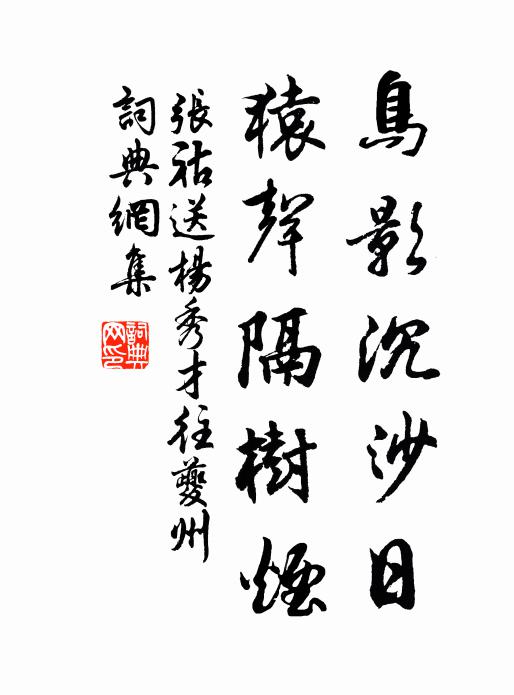 鳥影沉沙日
猿聲隔樹煙
張祜送楊秀才往夔州
詞典網集
詞典網印